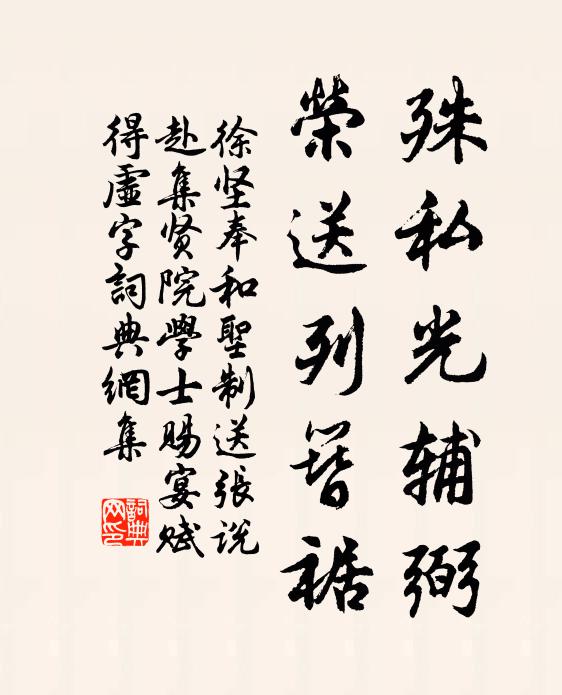 殊私光辅弼
荣送列簪裾
徐坚奉和聖制送張说
赴集贤院學士賜宴赋
得虚字詞典網集
詞典
网印